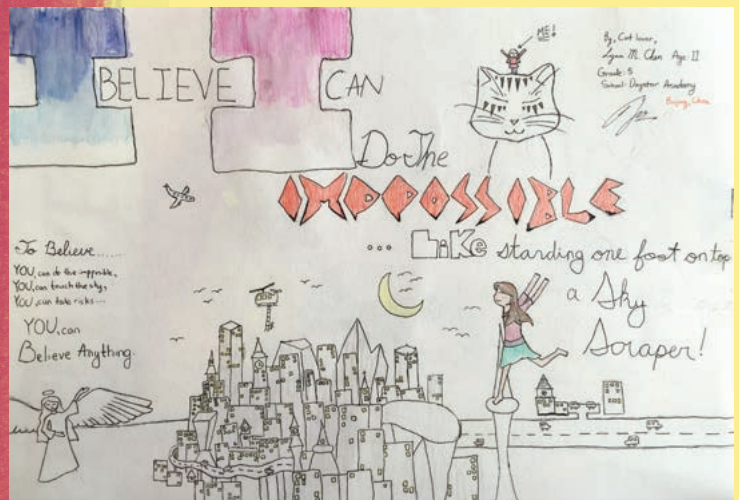 I BELIEVE I CAN
Do The
IMPOSSIBLE
... Like standing one foot on top
a Sky
Scraper!
ME!
By, Cat lover,
Lynn M. Chen Age 11
Grade: 5
School: Daystar Academy
Beijing, China
To Believe......
YOU, can do the impossible,
YOU, can touch the sky,
YOU, can take risks...
YOU, can
Believe Anything.